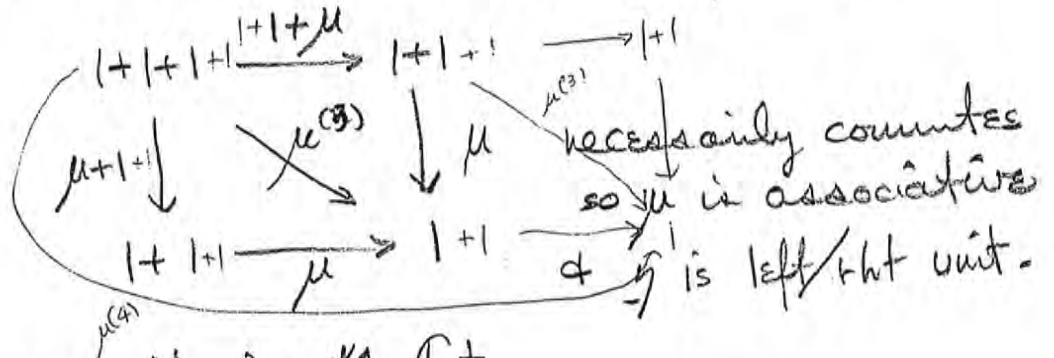 1+1+μ
1+1+1+1 → 1+1+1 → 1+1
μ+1+1 μ(3) μ μ(3) necessarily commutes
so μ is associative
1+1+1 → 1+1 → 1
μ & η is left/rht unit.
μ(4)